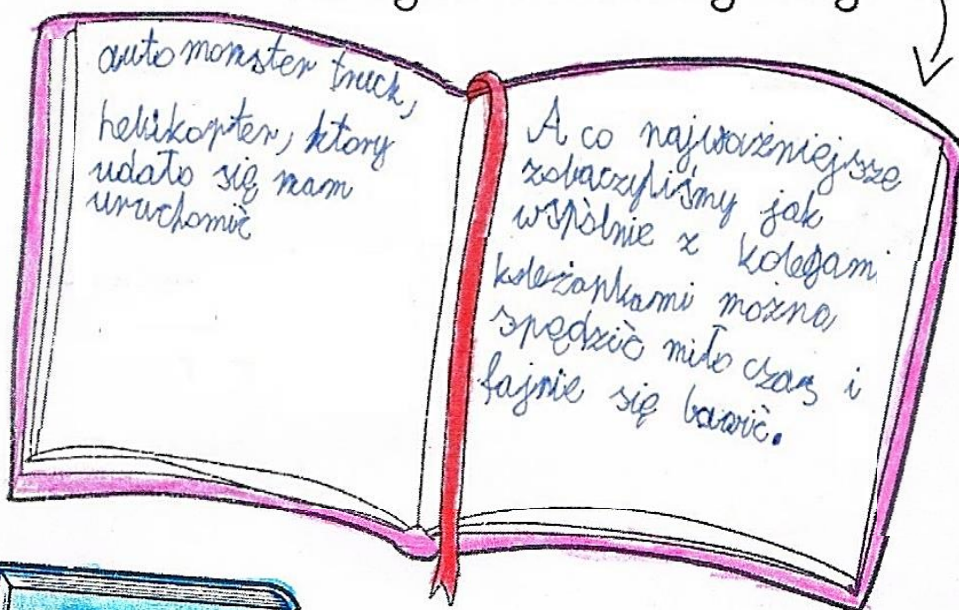 auto monster truck,
helikopter, ktory
udało się nam
uruchomić
A co najważniejsze
zobaczyliśmy jak
wspólnie z kolegami
koleżankami można
spędzić miło czas i
fajnie się bawić.